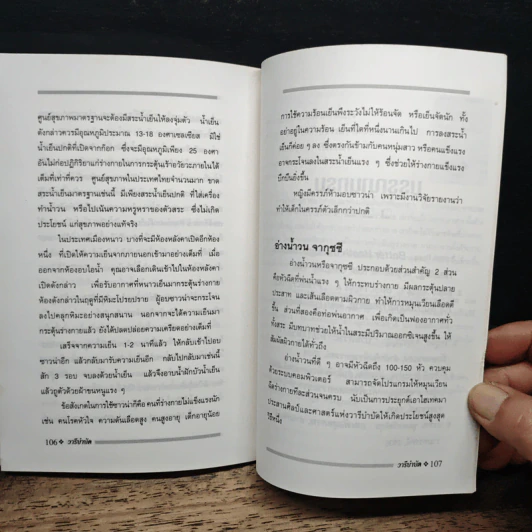 ศูนย์สุขภาพมาตรฐานจะต้องมีสระน้ำเย็นให้ลงจุ่มตัว น้ำเย็น
ดังกล่าวควรมีอุณหภูมิประมาณ 13-18 องศาเซลเซียส มิใช่
น้ำเย็นปกติที่เปิดจากก๊อก ซึ่งจะมีอุณหภูมิเพียง 25 องศา
อันไม่ก่อปฏิกิริยาแก่ร่างกายในการกระตุ้นเร้าอวัยวะภายในได้
เต็มที่เท่าที่ควร ศูนย์สุขภาพในประเทศไทยจำนวนมาก ขาด
สระน้ำเย็นมาตรฐานเช่นนี้ มีเพียงสระน้ำเย็นปกติ ที่ใส่เครื่อง
ทำน้ำวน หรือไปเน้นความหรูหราของตัวสระ ซึ่งไม่เกิด
ประโยชน์ แก่สุขภาพอย่างแท้จริง
ในประเทศเมืองหนาว บางทีจะมีห้องหลังคาเปิดอีกห้อง
หนึ่ง ที่เปิดให้ความเย็นจากภายนอกเข้ามาอย่างเต็มที่ เมื่อ
ออกจากห้องอบไอน้ำ คุณอาจเลือกเดินเข้าไปในห้องหลังคา
เปิดดังกล่าว เพื่อรับอากาศที่หนาวเย็นมากระตุ้นร่างกาย
ห้องดังกล่าวในฤดูที่มีหิมะโปรยปราย ผู้อบซาวน่าจะกระโจน
ลงไปคลุกหิมะอย่างสนุกสนาน นอกจากจะได้ความเย็นมา
กระตุ้นร่างกายแล้ว ยังได้ปลดปล่อยความเครียดอย่างเต็มที่
เสร็จจากความเย็น 1-2 นาทีแล้ว ให้กลับเข้าไปอบ
ซาวน่าอีก แล้วกลับมารับความเย็นอีก กลับไปกลับมาเช่นนี้
สัก 3 รอบ จบลงด้วยน้ำเย็น แล้วจึงอาบน้ำฝักบัวน้ำเย็น
แล้วถูตัวด้วยผ้าขนหนูแรง ๆ
ข้อสังเกตในการใช้ซาวน่าก็คือ คนที่ร่างกายไม่แข็งแรงนัก
เช่น คนโรคหัวใจ ความดันเลือดสูง คนสูงอายุ เด็กอายุน้อย
106 ❖ วารีบำบัด
การใช้ความร้อนเย็นพึงระวังไม่ให้ร้อนจัด หรือเย็นจัดนัก ทั้ง
อย่าอยู่ในความร้อน เย็นที่ใดที่หนึ่งนานเกินไป การลงสระน้ำ
เย็นก็ค่อย ๆ ลง ซึ่งตรงกันข้ามกับคนหนุ่มสาว หรือคนแข็งแรง
อาจกระโจนลงในสระน้ำเย็นแรง ๆ ซึ่งช่วยให้ร่างกายแข็งแรง
บึกบึนยิ่งขึ้น
หญิงมีครรภ์ห้ามอบซาวน่า เพราะมีงานวิจัยรายงานว่า
ทำให้เด็กในครรภ์ตัวเล็กกว่าปกติ
อ่างน้ำวน จากุซซี่
อ่างน้ำวนหรือจากุซซี่ ประกอบด้วยส่วนสำคัญ 2 ส่วน
คือหัวฉีดที่พ่นน้ำแรง ๆ ให้กระทบร่างกาย มีผลกระตุ้นปลาย
ประสาท และเส้นเลือดตามผิวกาย ทำให้การหมุนเวียนเลือดดี
ขึ้น ส่วนที่สองคือท่อพ่นอากาศ เพื่อเกิดเป็นฟองอากาศทั่ว
ทั้งสระ มีบทบาทช่วยให้น้ำในสระมีปริมาณออกซิเจนสูงขึ้น ให้
สัมผัสผิวกายได้ทั่วถึง
อ่างน้ำวนที่ดี ๆ อาจมีหัวฉีดถึง 100-150 หัว ควบคุม
ด้วยระบบคอมพิวเตอร์ สามารถจัดโปรแกรมให้หมุนเวียน
ฉีดร่างกายทีละส่วนจนครบ นับเป็นการประยุกต์เอาไฮเทคมา
ประสานศิลป์และศาสตร์แห่งวารีบำบัดให้เกิดประโยชน์สูงสุด
วิธีหนึ่ง
วารีบำบัด ❖ 107